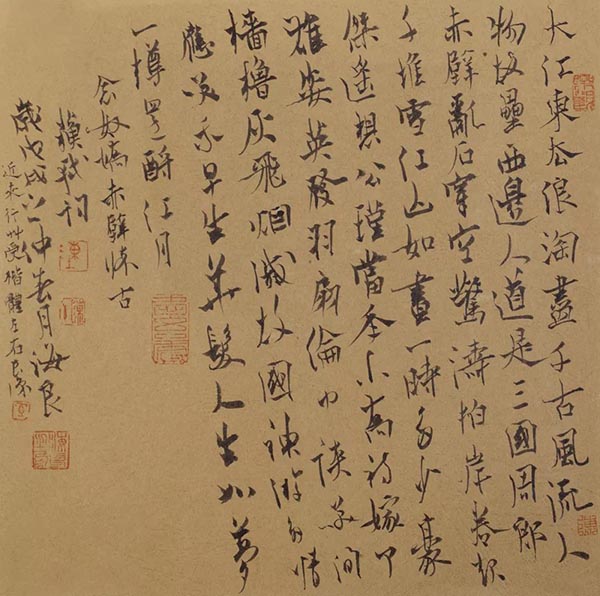 大江東去浪淘盡千古風流人
物故壘西邊人道是三國周郎
赤壁亂石穿空驚濤拍岸卷起
千堆雪江山如畫一時多少豪
傑遙想公瑾當年小喬初嫁了
雄姿英發羽扇綸巾談笑間
檣櫓灰飛烟滅故國神游多情
應笑我早生華髮人生如夢
一樽還酹江月
念奴嬌赤壁懷古
蘇軾詞
歲戊戌之仲春月海良
近來行草受楷體左右